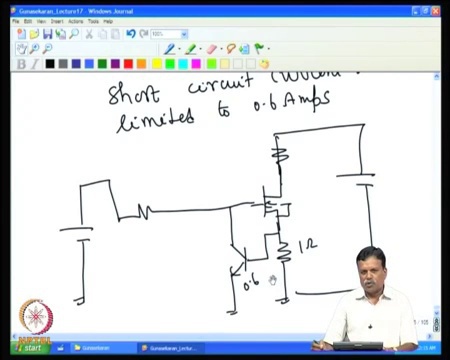 Gunasekaran_Lecture17 - Windows Journal
File Edit View Insert Actions Tools Help
100%
B I
short circuit
limited to 0.6 Amps
1Ω
0.6
NPTEL
start
Gunasekaran
Gunasekaran_Lectu...